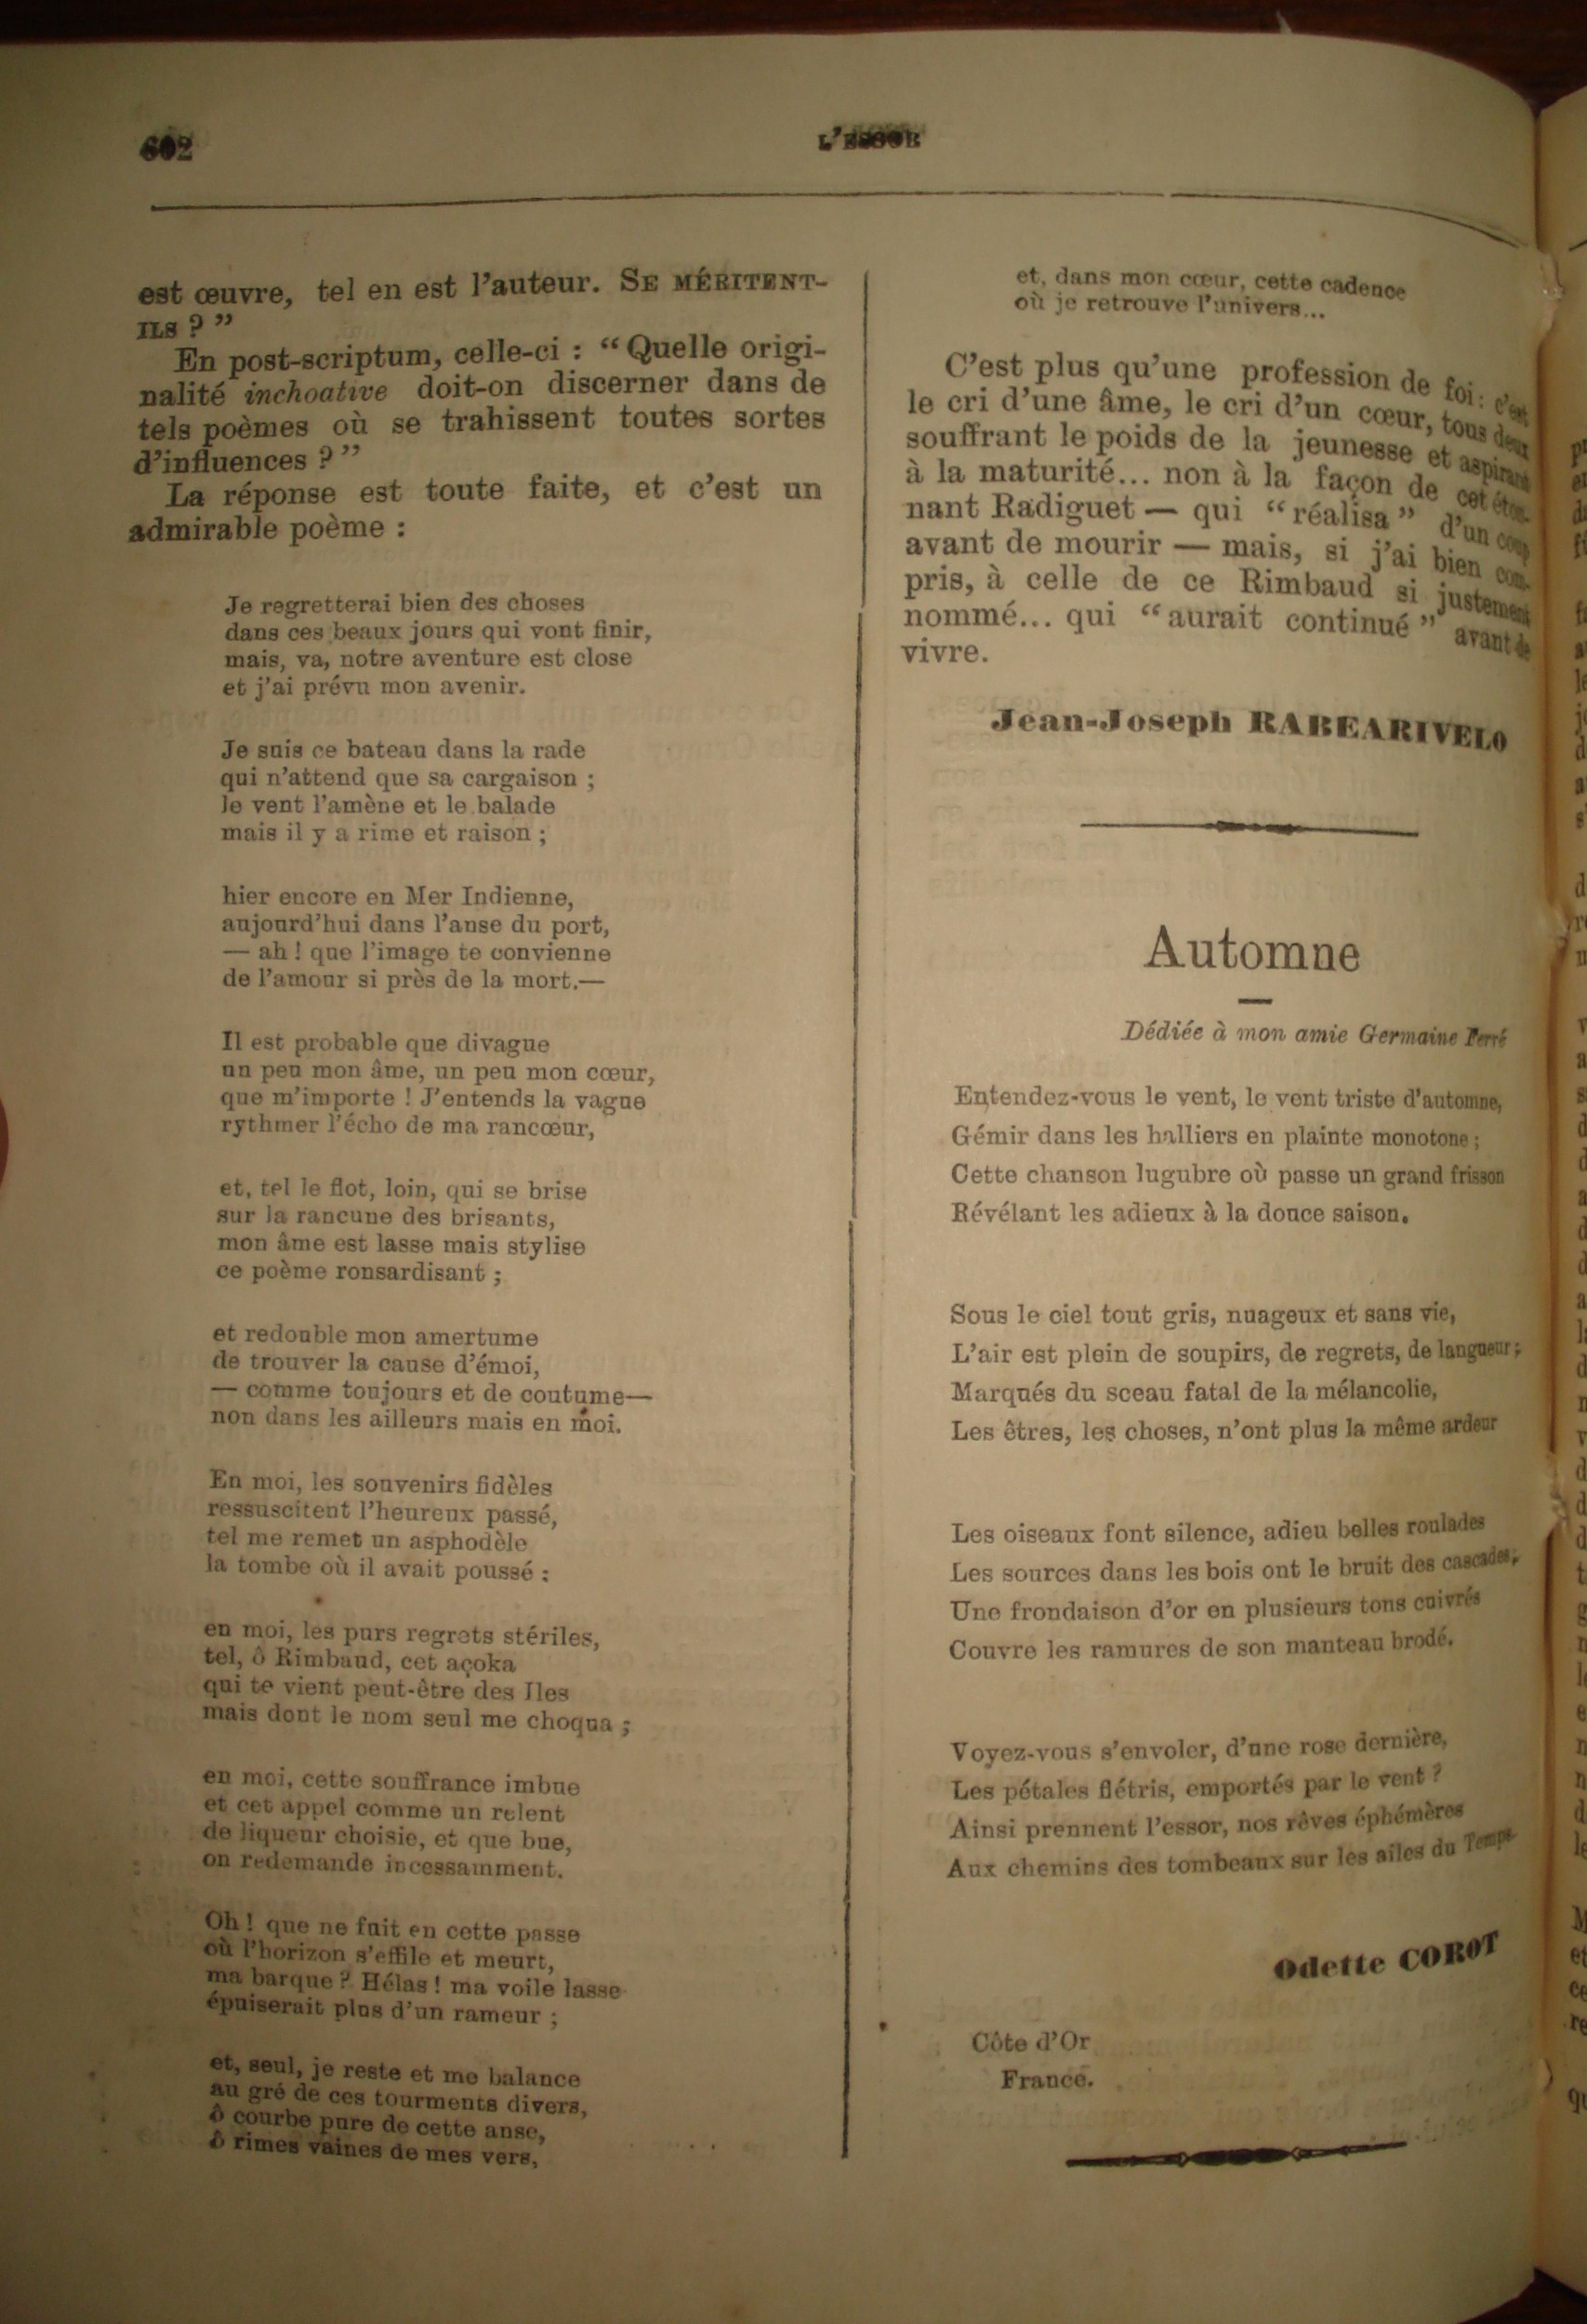 602
L'ESSOR
est œuvre, tel en est l'auteur. SE MÉRITENT-
ILS ? ”
En post-scriptum, celle-ci : “ Quelle origi-
nalité inchoative doit-on discerner dans de
tels poèmes où se trahissent toutes sortes
d'influences ? ”
La réponse est toute faite, et c'est un
admirable poème :
Je regretterai bien des choses
dans ces beaux jours qui vont finir,
mais, va, notre aventure est close
et j'ai prévu mon avenir.
Je suis ce bateau dans la rade
qui n'attend que sa cargaison ;
le vent l'amène et le balade
mais il y a rime et raison ;
hier encore en Mer Indienne,
aujourd'hui dans l'anse du port,
— ah ! que l'image te convienne
de l'amour si près de la mort.—
Il est probable que divague
un peu mon âme, un peu mon cœur,
que m'importe ! J'entends la vague
rythmer l'écho de ma rancœur,
et, tel le flot, loin, qui se brise
sur la rancune des brisants,
mon âme est lasse mais stylise
ce poème ronsardisant ;
et redouble mon amertume
de trouver la cause d'émoi,
— comme toujours et de coutume—
non dans les ailleurs mais en moi.
En moi, les souvenirs fidèles
ressuscitent l'heureux passé,
tel me remet un asphodèle
la tombe où il avait poussé :
en moi, les purs regrets stériles,
tel, ô Rimbaud, cet açoka
qui te vient peut-être des Iles
mais dont le nom seul me choqua ;
en moi, cette souffrance imbue
et cet appel comme un relent
de liqueur choisie, et que bue,
on redemande incessamment.
Oh ! que ne fuit en cette passe
où l'horizon s'effile et meurt,
ma barque ? Hélas ! ma voile lasse
épuiserait plus d'un rameur ;
et, seul, je reste et me balance
au gré de ces tourments divers,
ô courbe pure de cette anse,
ô rimes vaines de mes vers,
et, dans mon cœur, cette cadence
où je retrouve l'univers...
C'est plus qu'une profession de foi : c'est
le cri d'une âme, le cri d'un cœur, tous deux
souffrant le poids de la jeunesse et aspirant
à la maturité... non à la façon de cet éton-
nant Radiguet — qui “ réalisa ” d'un coup
avant de mourir — mais, si j'ai bien com-
pris, à celle de ce Rimbaud si justement
nommé... qui “ aurait continué ” avant de
vivre.
Jean-Joseph RABEARIVELO
Automne
Dédiée à mon amie Germaine Ferré
Entendez-vous le vent, le vent triste d'automne,
Gémir dans les halliers en plainte monotone ;
Cette chanson lugubre où passe un grand frisson
Révélant les adieux à la douce saison.
Sous le ciel tout gris, nuageux et sans vie,
L'air est plein de soupirs, de regrets, de langueur ;
Marqués du sceau fatal de la mélancolie,
Les êtres, les choses, n'ont plus la même ardeur
Les oiseaux font silence, adieu belles roulades
Les sources dans les bois ont le bruit des cascades,
Une frondaison d'or en plusieurs tons cuivrés
Couvre les ramures de son manteau brodé.
Voyez-vous s'envoler, d'une rose dernière,
Les pétales flétris, emportés par le vent ?
Ainsi prennent l'essor, nos rêves éphémères
Aux chemins des tombeaux sur les ailes du Temps
Odette COROT
Côte d'Or
France.